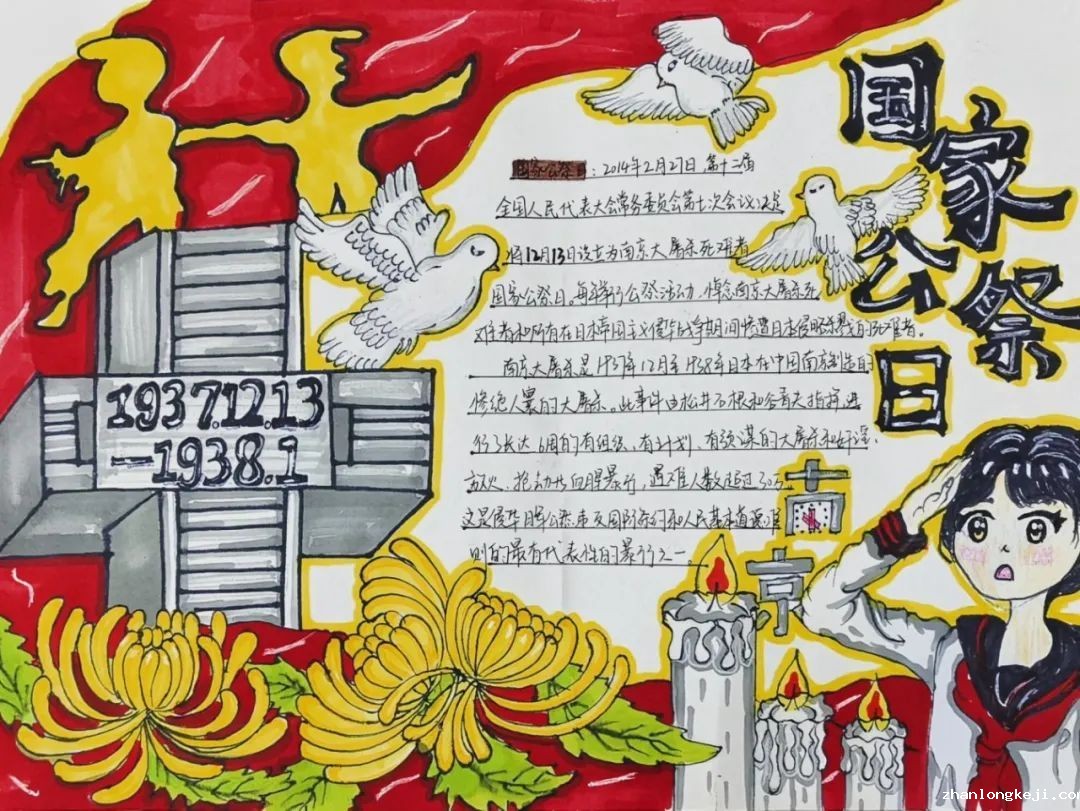 国家公祭日
国家公祭日：2014年2月27日,第十二届
全国人民代表大会常务委员会第七次会议决定
将12月13日设立为南京大屠杀死难者
国家公祭日。每年举行公祭活动,悼念南京大屠杀死
难者和所有在日本帝国主义侵华战争期间惨遭日本侵略杀戮的死难者。
南京大屠杀是1937年12月至1938年日本在中国南京制造的
惨绝人寰的大屠杀。此事件由松井石根和谷寿夫指挥,进
行了长达6周的有组织、有计划、有预谋的大屠杀和奸淫、
放火、抢劫等血腥暴行,遇难人数超过30万。
这是侵华日军公然
国际条约和人民基本道德准
则的最有代表性的暴行之一。
1937.12.13
—1938.1
南
京
zhanlongkeji.com